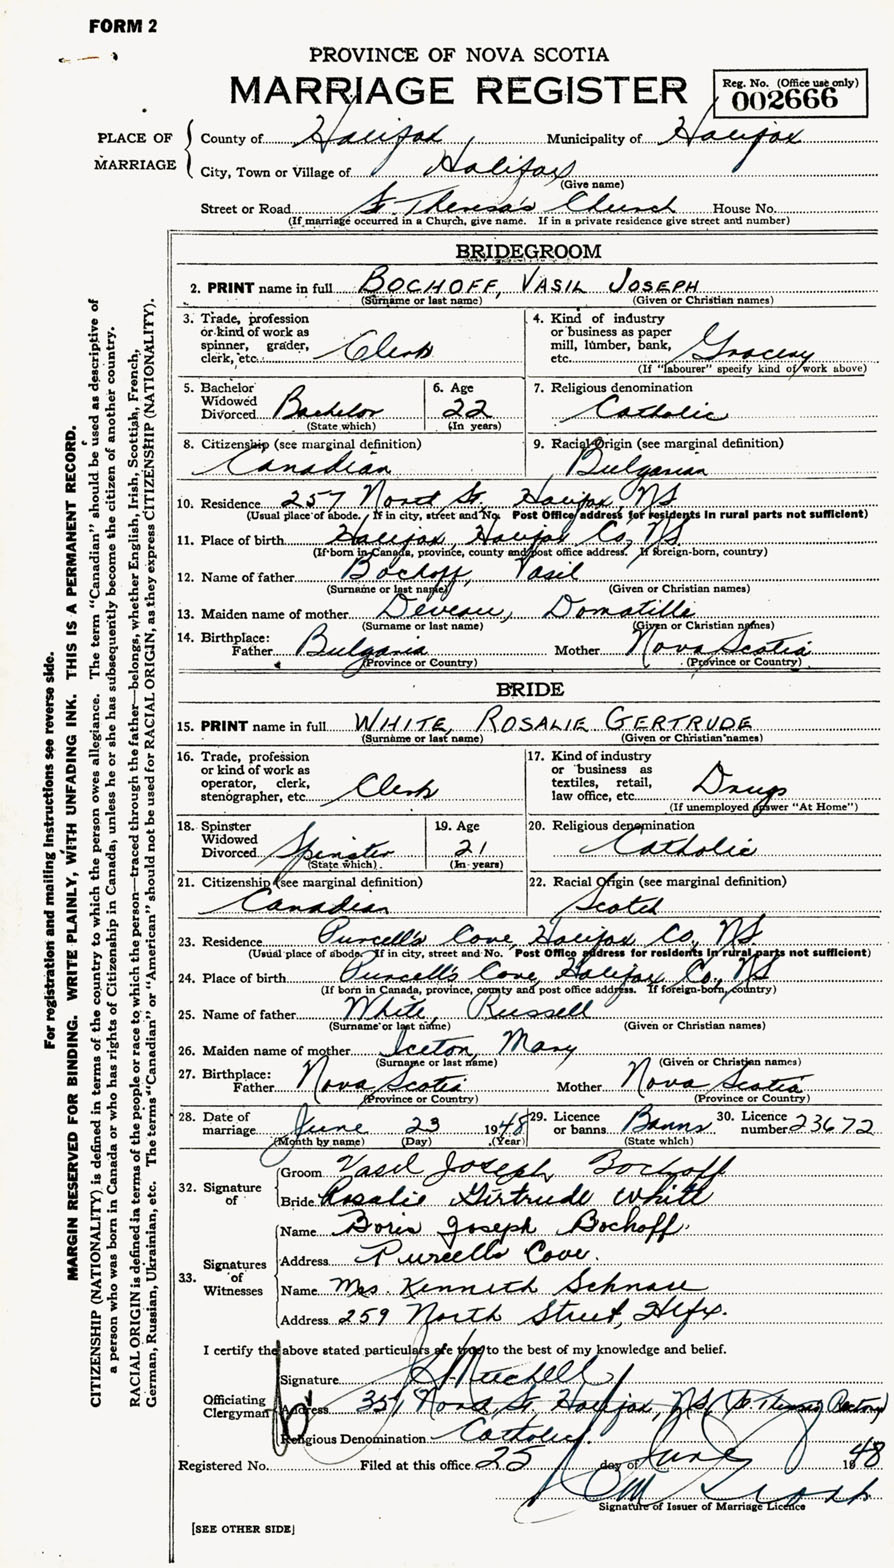 FORM 2
PROVINCE OF NOVA SCOTIA
MARRIAGE REGISTER
Reg. No. (Office use only)
002666
PLACE OF MARRIAGE
County of Halifax Municipality of Halifax
City, Town or Village of Halifax
(Give name)
Street or Road St. Theresa's Church House No.
(If marriage occurred in a Church, give name. If in a private residence give street and number)
BRIDEGROOM
2. PRINT name in full BOCHOFF, VASIL JOSEPH
(Surname or last name) (Given or Christian names)
3. Trade, profession or kind of work as spinner, grader, clerk, etc. Clerk
4. Kind of industry or business as paper mill, lumber, bank, etc. Grocery
(If "labourer" specify kind of work above)
5. Bachelor Widowed Divorced Bachelor
(State which)
6. Age 22
(In years)
7. Religious denomination Catholic
8. Citizenship (see marginal definition) Canadian
9. Racial Origin (see marginal definition) Bulgarian
10. Residence 257 North St. Halifax, NS
(Usual place of abode. If in city, street and No. Post Office address for residents in rural parts not sufficient)
11. Place of birth Halifax, Halifax Co, NS
(If born in Canada, province, county and post office address. If foreign-born, country)
12. Name of father Bochoff, Vasil
(Surname or last name) (Given or Christian names)
13. Maiden name of mother Deveau, Domatille
(Surname or last name) (Given or Christian names)
14. Birthplace:
Father Bulgaria Mother Nova Scotia
(Province or Country) (Province or Country)
BRIDE
15. PRINT name in full WHITE, ROSALIE GERTRUDE
(Surname or last name) (Given or Christian names)
16. Trade, profession or kind of work as operator, clerk, stenographer, etc. Clerk
17. Kind of industry or business as textiles, retail, law office, etc. Drugs
(If unemployed answer "At Home")
18. Spinster Widowed Divorced Spinster
(State which)
19. Age 21
(In years)
20. Religious denomination Catholic
21. Citizenship (see marginal definition) Canadian
22. Racial Origin (see marginal definition) Scotch
23. Residence Purcell's Cove, Halifax Co, NS.
(Usual place of abode. If in city, street and No. Post Office address for residents in rural parts not sufficient)
24. Place of birth Purcell's Cove, Halifax Co., NS
(If born in Canada, province, county and post office address. If foreign-born, country)
25. Name of father White, Russell
(Surname or last name) (Given or Christian names)
26. Maiden name of mother Iceton, Mary
(Surname or last name) (Given or Christian names)
27. Birthplace:
Father Nova Scotia Mother Nova Scotia
(Province or Country) (Province or Country)
28. Date of marriage June 23 1948
(Month by name) (Day) (Year)
29. Licence or banns Banns
(State which)
30. Licence number 23672
32. Signature of
Groom Vasil Joseph Bochoff
Bride Rosalie Gertrude White
33. Signatures of Witnesses
Name Boris Joseph Bochoff.
Address Purcells Cove.
Name Mrs. Kenneth Schnare
Address 259 North Street, Hlfx.
I certify the above stated particulars are true to the best of my knowledge and belief.
Officiating Clergyman
Signature Mitchell
Address North St. Halifax, NS, (St. Theresa's Rectory)
Religious Denomination Catholic.
Registered No. Filed at this office 25 day of June 1948
Signature of Issuer of Marriage Licence
[SEE OTHER SIDE]
For registration and mailing instructions see reverse side.
MARGIN RESERVED FOR BINDING. WRITE PLAINLY, WITH UNFADING INK. THIS IS A PERMANENT RECORD.
CITIZENSHIP (NATIONALITY) is defined in terms of the country to which the person owes allegiance. The term "Canadian" should be used as descriptive of
a person who was born in Canada or who has rights of Citizenship in Canada, unless he or she has subsequently become the citizen of another country.
RACIAL ORIGIN is defined in terms of the people or race to which the person—traced through the father—belongs, whether English, Irish, Scottish, French,
German, Russian, Ukrainian, etc. The terms "Canadian" or "American" should not be used for RACIAL ORIGIN, as they express CITIZENSHIP (NATIONALITY).